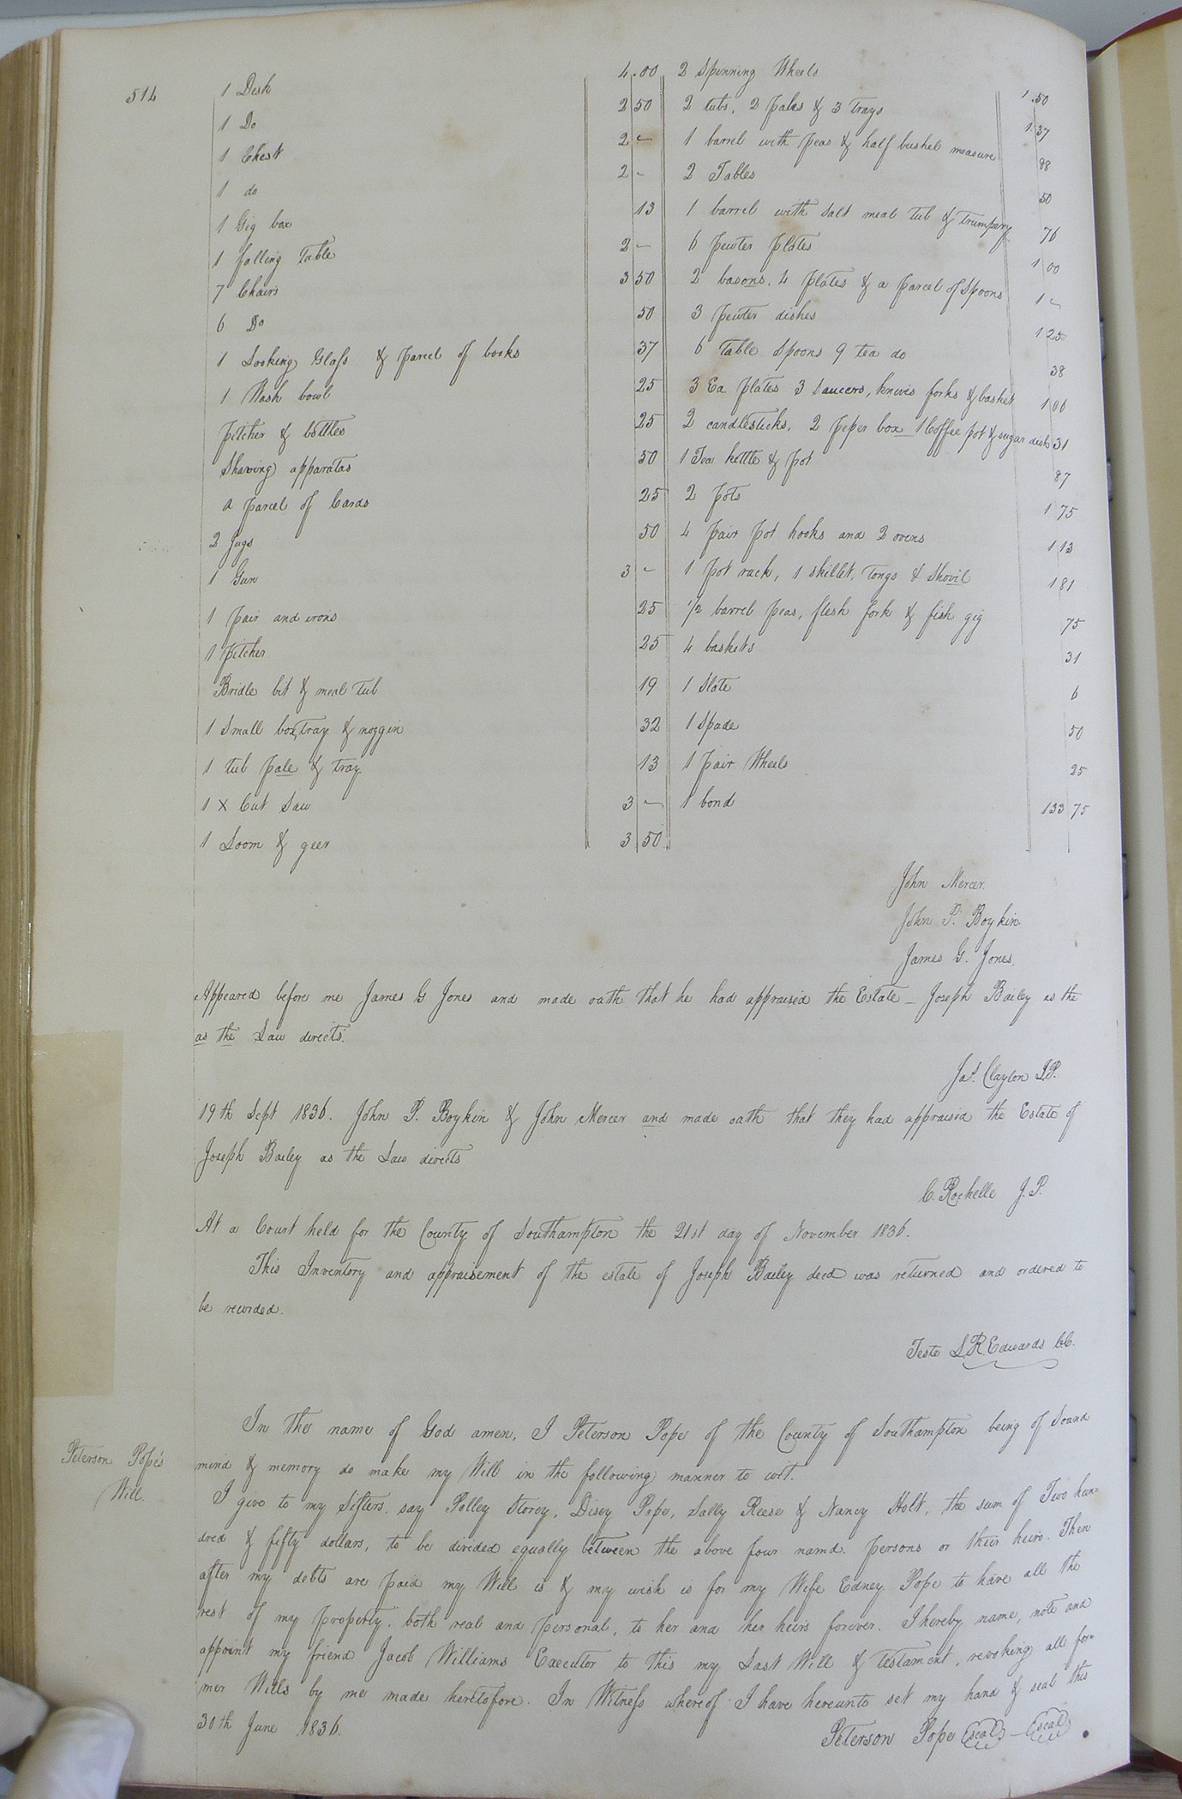 514
1 Desk 4.00
1 Do 2 50
1 Chest 2 -
1 do 2 -
1 Gig box 13
1 falling Table 2 -
7 Chairs 3 50
6 Do 50
1 Looking Glass & parcel of books 37
1 Wash bowl 25
pitcher & bottles 25
Shaving apparatas 50
a parcel of Cards 25
2 Jugs 50
1 Gun 3 -
1 pair and irons 25
1 pitcher 25
Bridle bit & meal tub 19
1 Small box, tray & noggin 32
1 tub pale & tray 13
1 X Cut Saw 3 -
1 Loom & geer 3 50
2 Spinning Wheels 1.50
2 tubs, 2 pales & 3 trays 1.37
1 barrel with peas & half bushel measure 98
2 Tables 50
1 barrel with salt meal tub & trumpery 76
6 pewter plates 1 00
2 basons, 4 plates & a parcel of Spoons 1 -
3 pewter dishes 1 25
6 Table Spoons 9 tea do 38
3 Ea plates 3 Saucers, knives forks & basket 1 00
2 candlesticks, 2 peper box 1 Coffee pot & sugar dish 31
1 Tea kettle & pot 87
2 pots 1 75
4 pair pot hooks and 2 ovens 1 13
1 pot rack, 1 skillet, tongs & Shovil 1 81
1/2 barrel peas, flesh fork & fish gig 75
4 baskets 31
1 Slate 6
1 Spade 50
1 pair Wheels 25
1 bond 133 75
John Mercer.
John P. Boykin
James G. Jones.
Appeared before me James G Jones and made oath that he had appraised the Estate - Joseph Bailey as the
as the Law directs.
Jas. Clayton J.P.
19th Sept 1836. John P. Boykin & John Mercer and made oath that they had appraised the Estate of
Joseph Bailey as the Law directs
C. Rochelle J.P.
At a Court held for the County of Southampton the 21st day of November 1836.
This Inventory and appraisement of the estate of Joseph Bailey decd was returned and ordered to
be recorded.
Teste L.R. Edwards C.C.
Peterson Pope's
Will.
In the name of God amen, I Peterson Pope of the County of Southampton being of Sound
mind & memory do make my Will in the following manner to wit.
I give to my Sisters, say Polley Storey, Disey Pope, Sally Reese & Nancy Holt, the sum of Two hun
dred & fifty dollars, to be divided equally between the above four namd. persons or their heirs. Then
after my debts are paid my Will is & my wish is for my Wife Edney Pope to have all the
rest of my property, both real and personal, to her and her heirs forever. I hereby name, note and
appoint my friend Jacob Williams Executor to this my Last Will & testament, revoking all for-
mer Wills by me made heretofore. In Witness whereof I have hereunto set my hand & seal this
30th June 1836.
Peterson Pope (Seal) - (Seal)